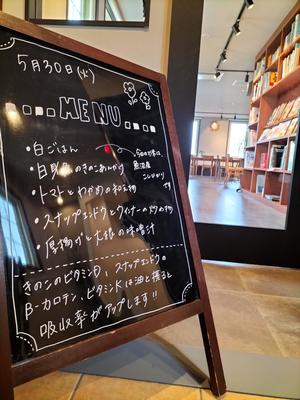 5月30日(火)
MENU
・白ごはん
今回のお米は
魚沼産
こしひかり
です
・白身魚のきのこあんかけ
・トマトとわかめの和え物
・スナップエンドウとウインナーの炒め物
・厚揚げと大根の味噌汁
きのこのビタミンD、スナップエンドウの
β-カロテン、ビタミンKは油と摂ると
吸収率がアップします!!